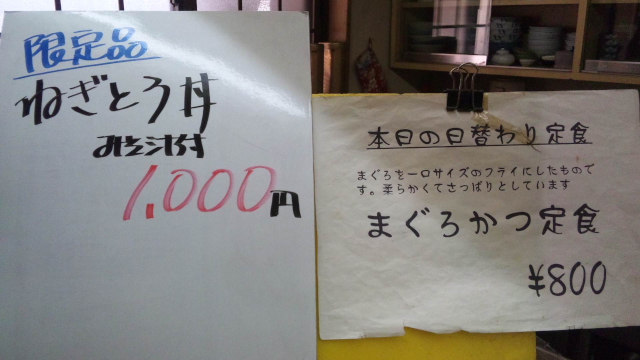 限定品
ねぎとろ丼
みそ汁付
1,000円
本日の日替わり定食
まぐろを一口サイズのフライにしたもので
す。柔らかくてさっぱりとしています
まぐろかつ定食
¥800